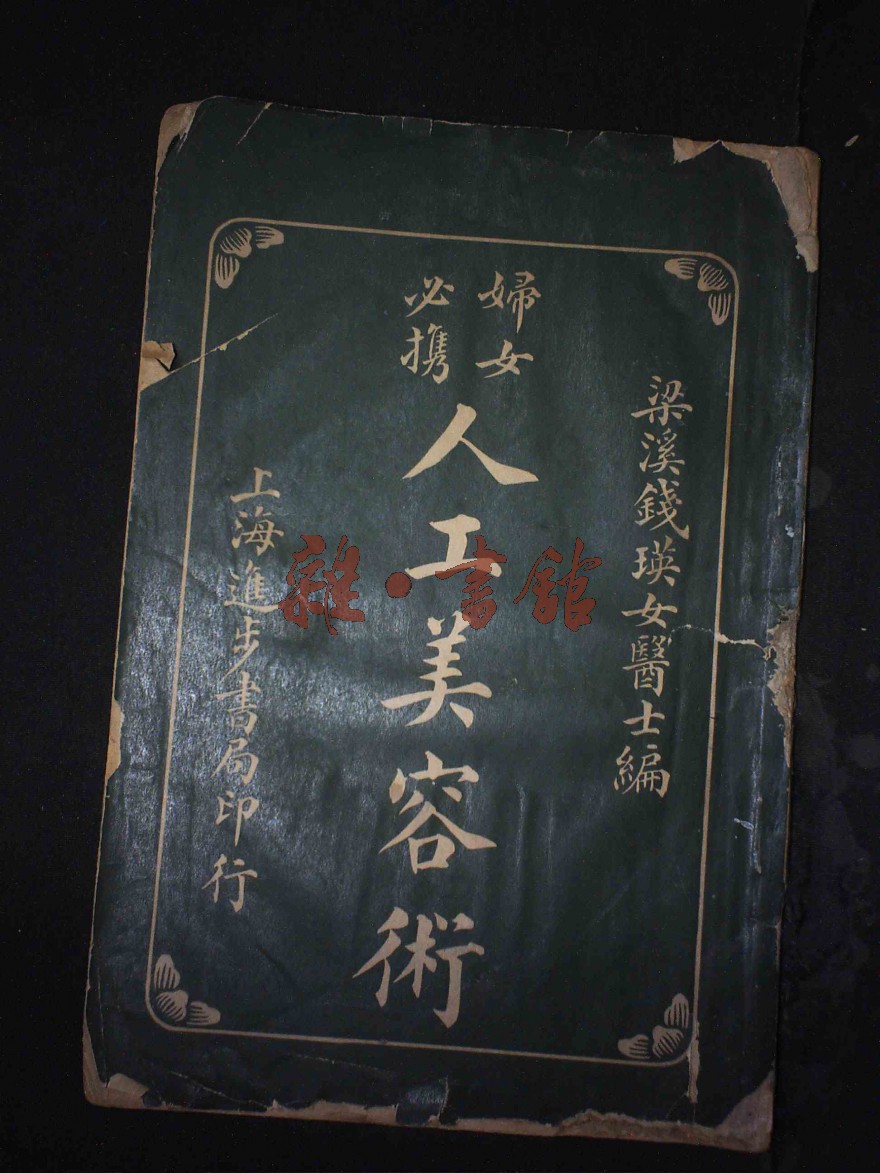 梁溪錢瑛女醫士編
婦女
必携
人工美容術
上海進步書局印行
雜·書館